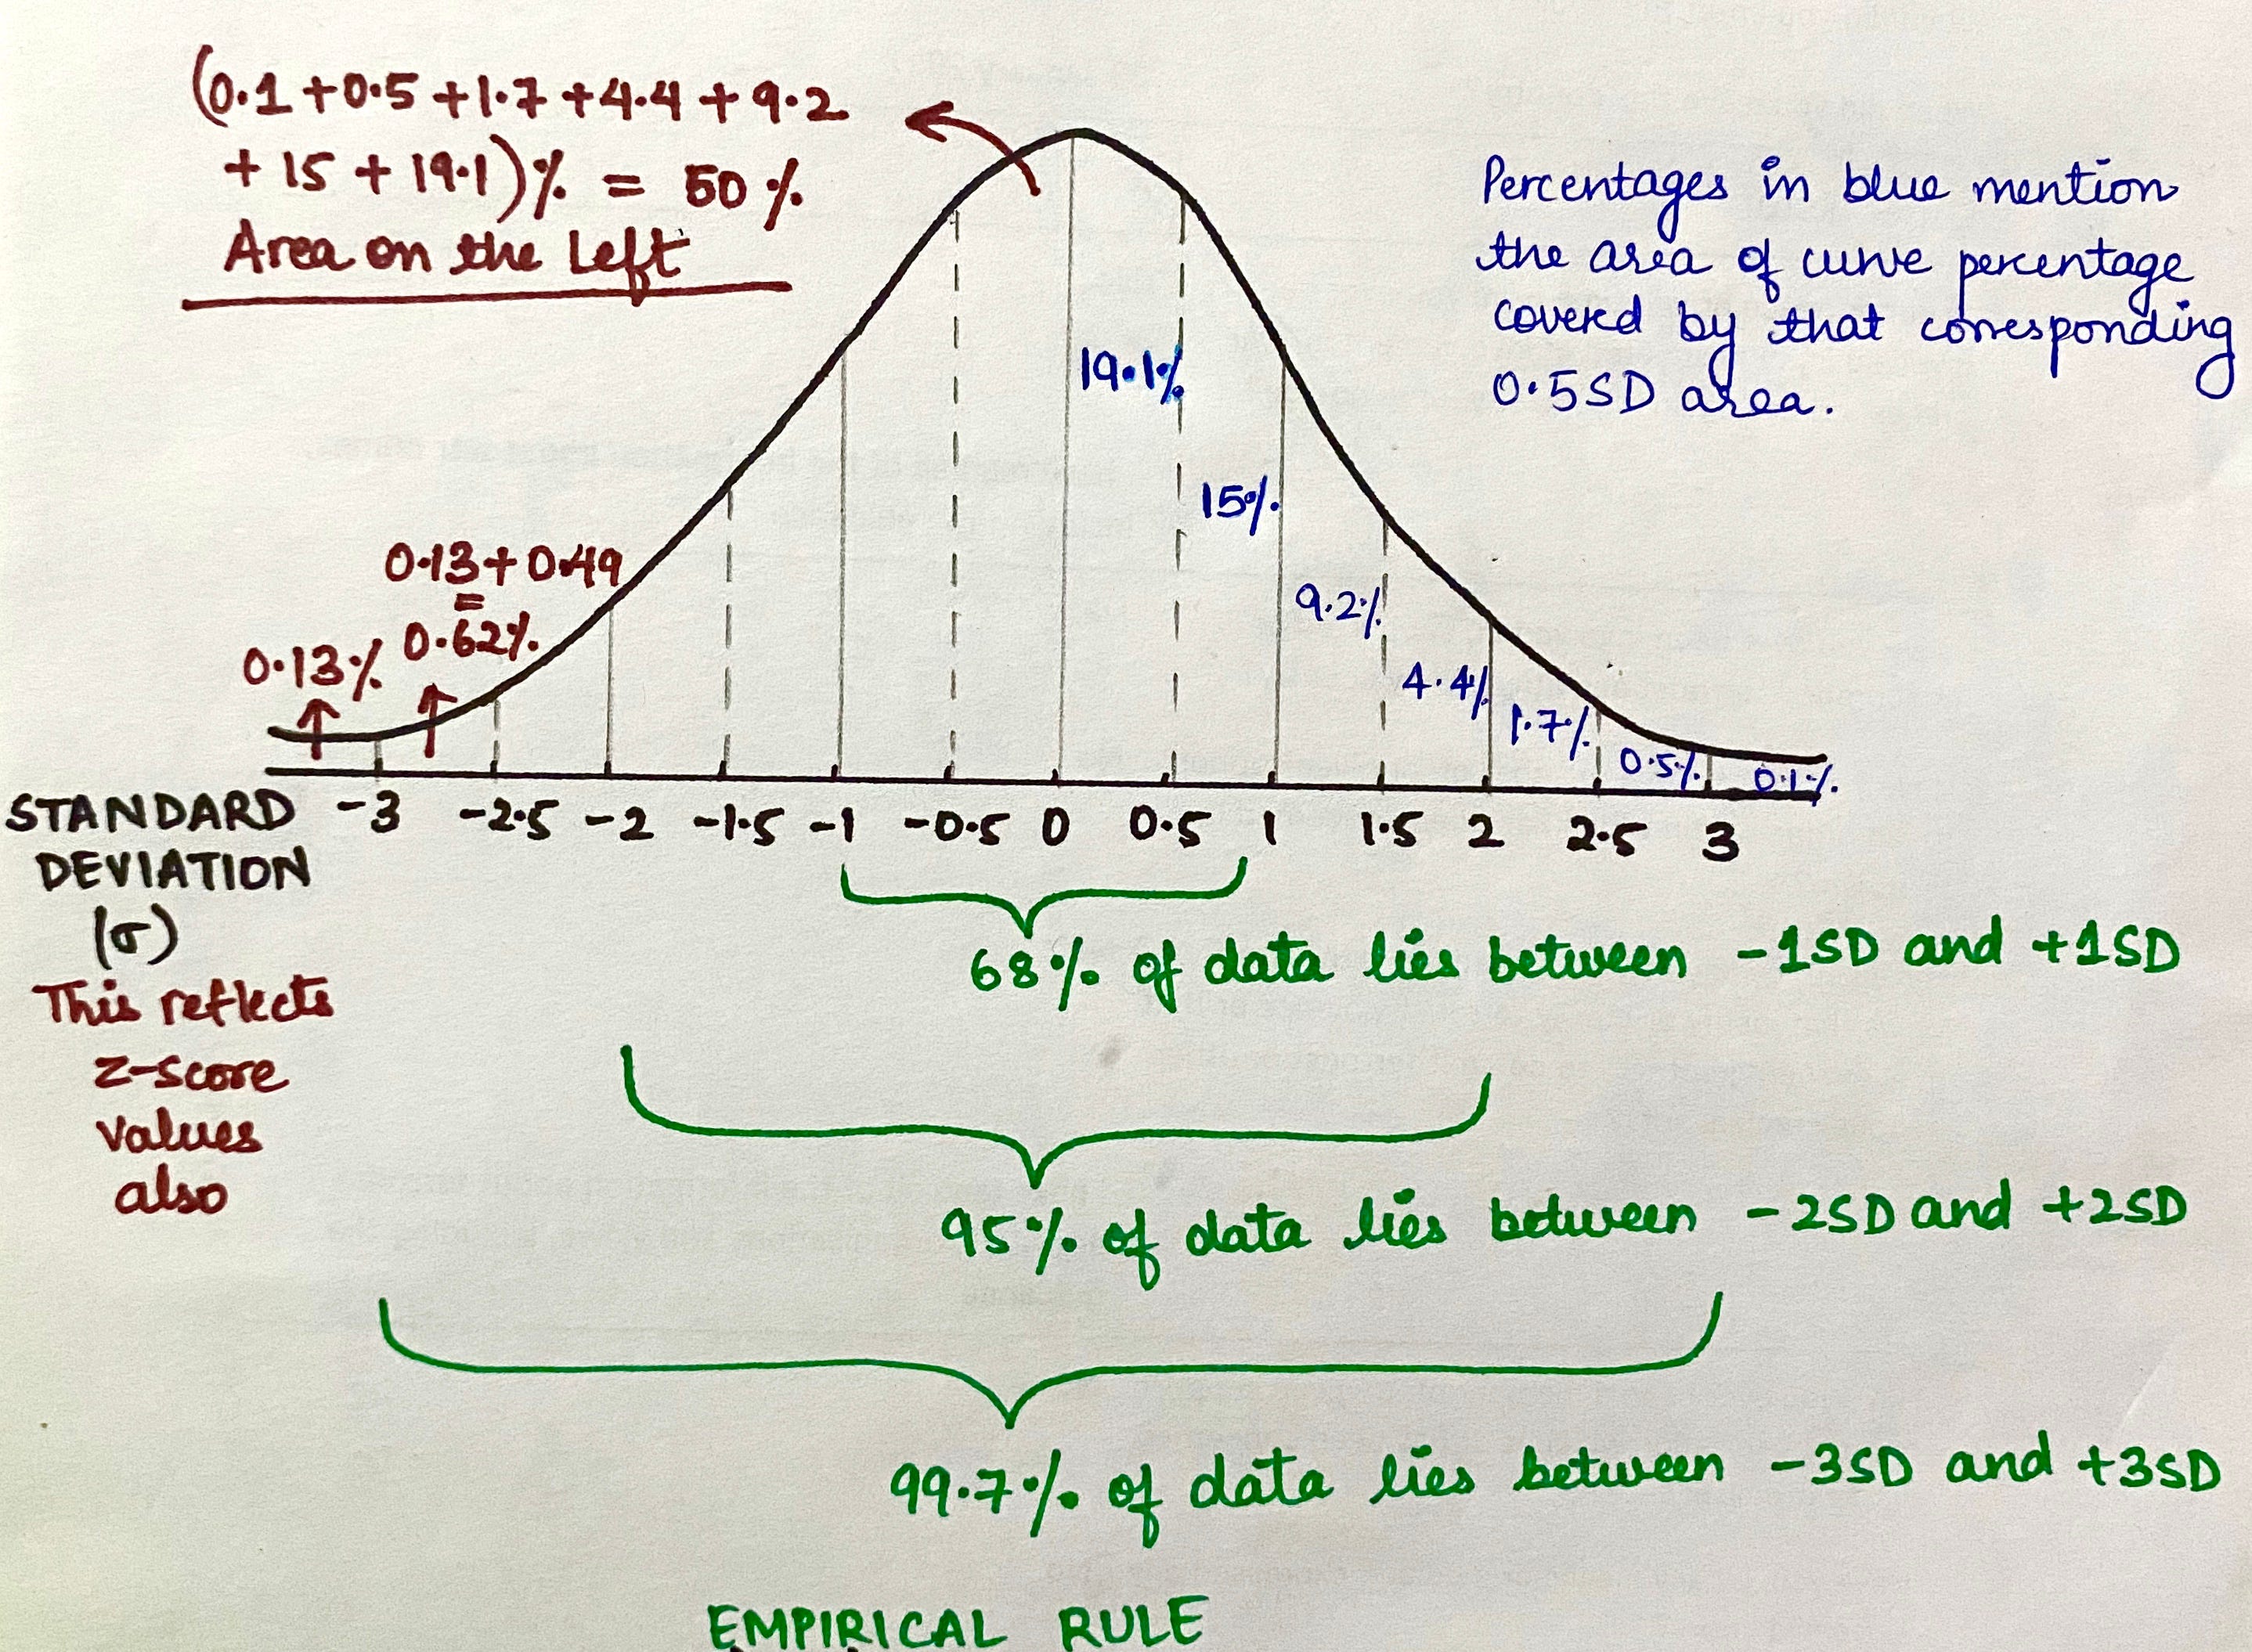 (0.1 + 0.5 + 1.7 + 4.4 + 9.2
+ 15 + 19.1)% = 50%
Area on the Left
Percentages in blue mention
the area of curve percentage
covered by that corresponding
0.5SD area.
19.1%
15%
9.2%
4.4%
1.7%
0.5%
0.1%
0.13 + 0.49
=
0.62%
0.13%
-3 -2.5 -2 -1.5 -1 -0.5 0 0.5 1 1.5 2 2.5 3
STANDARD
DEVIATION
(σ)
This reflects
z-score
values
also
68% of data lies between -1SD and +1SD
95% of data lies between -2SD and +2SD
99.7% of data lies between -3SD and +3SD
EMPIRICAL RULE